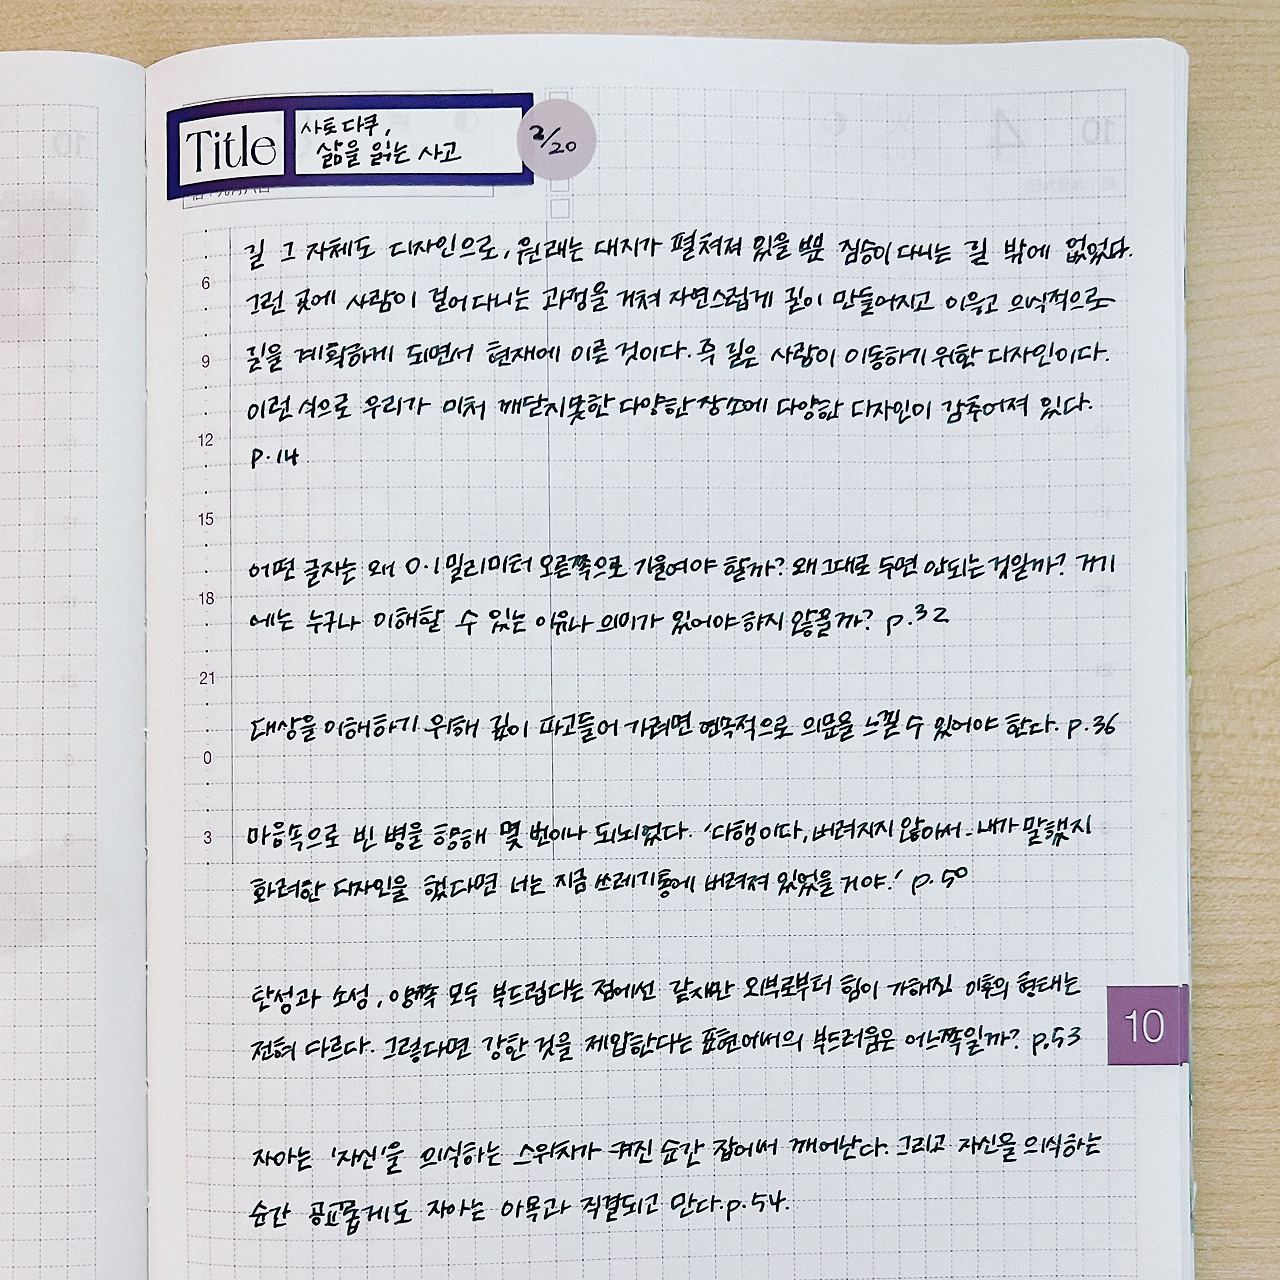 Title
사토 다쿠,
삶을 읽는 사고
2/20
길 그 자체도 디자인으로, 원래는 대지가 펼쳐져 있을 뿐 짐승이 다니는 길 밖에 없었다.
그런 곳에 사람이 걸어다니는 과정을 거쳐 자연스럽게 길이 만들어지고 이윽고 의식적으로
길을 계획하게 되면서 현재에 이른 것이다. 즉 길은 사람이 이동하기 위한 디자인이다.
이런 식으로 우리가 미처 깨닫지못한 다양한 장소에 다양한 디자인이 감추어져 있다.
p.14
어떤 글자는 왜 0.1밀리미터 오른쪽으로 기울여야 할까? 왜 그대로 두면 안되는 것일까? 거기
에는 누구나 이해할 수 있는 이유나 의미가 있어야 하지 않을까? p.32
대상을 이해하기 위해 깊이 파고들어 가려면 연속적으로 의문을 느낄 수 있어야 한다. p.36
마음속으로 빈 병을 향해 몇 번이나 되뇌었다. '다행이다, 버려지지 않아서. 내가 말했지
화려한 디자인을 했다면 너는 지금 쓰레기통에 버려져 있었을 거야.' p.50
탄성과 소성, 양쪽 모두 부드럽다는 점에선 같지만 외부로부터 힘이 가해진 이후의 형태는
전혀 다르다. 그렇다면 강한 것을 제압한다는 표현에서의 부드러움은 어느쪽일까? p.53
자아는 '자신'을 의식하는 스위치가 켜진 순간 잠에서 깨어난다. 그리고 자신을 의식하는
순간 공교롭게도 자아는 이목과 직결되고 만다. p.54.
6
9
12
15
18
21
0
3
10